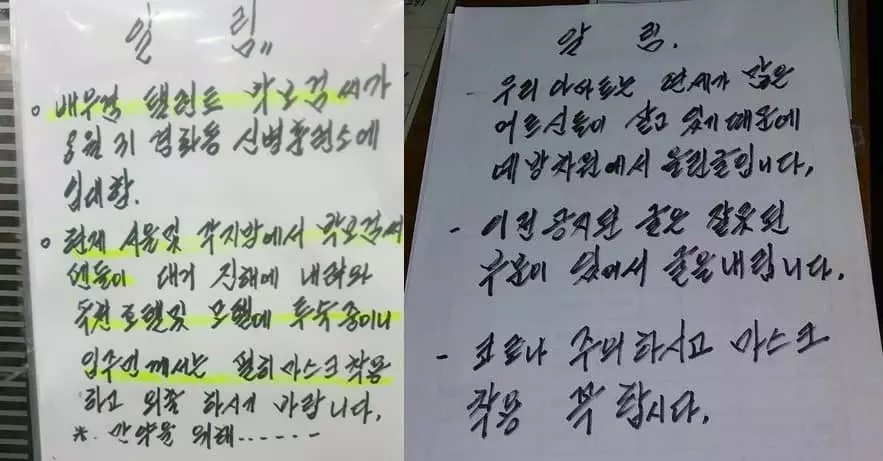 알 림"
○ 배우겸 탤런트 박보검씨가
8월 31 경화동 신병훈련소에
입대함.
○ 현재 서울및 각지방에서 박보검씨
팬들이 대거 진해에 내려와
속천호텔및 모텔에 투숙중이니
입주민께서는 필히마스크 착용
하고 외출 하시기 바랍니다.
※. 만약을 위해------
알 림.
우리 아파트는 연세가 많은
어르신들이 살고 있기 때문에
예방차원에서 올린글입니다.
- 이전공지된 글은 잘못된
부분이 있어서 글을내립니다.
- 코로나 주의하시고 마스크
착용 꼭 합시다.